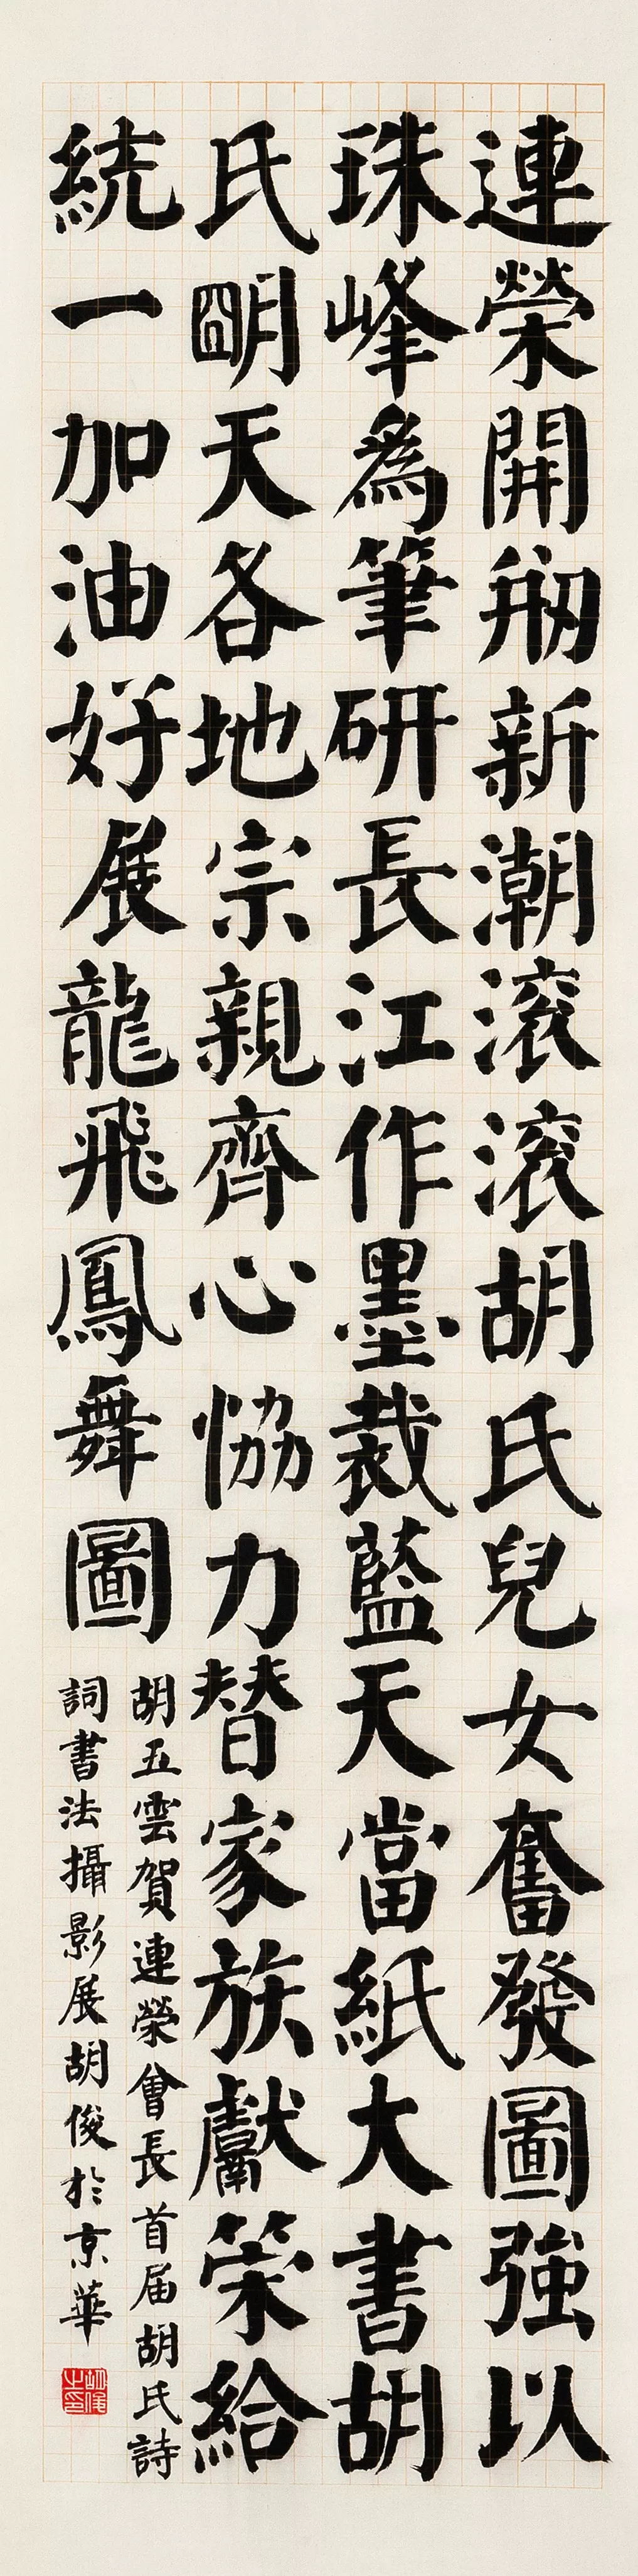 連榮開剏新潮滚滚胡氏兒女奮發圖強以
珠峰爲筆研長江作墨裁藍天當紙大書胡
氏朙天各地宗親齊心恊力替家族獻榮給
統一加油好展龍飛鳳舞圖
胡五雲賀連榮會長首届胡氏詩
詞書法攝影展胡俊於京華
胡俊之印